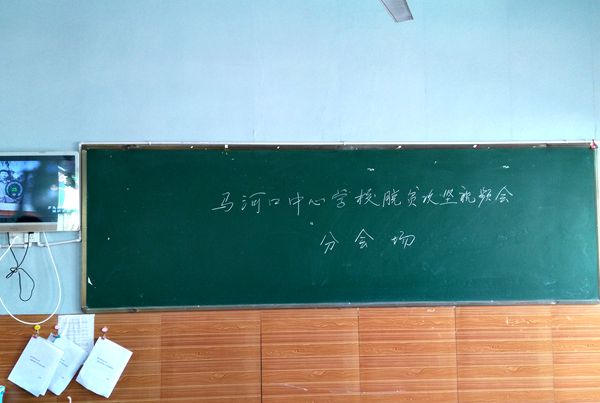 马河口中心学校脱贫攻坚视频会
分会场